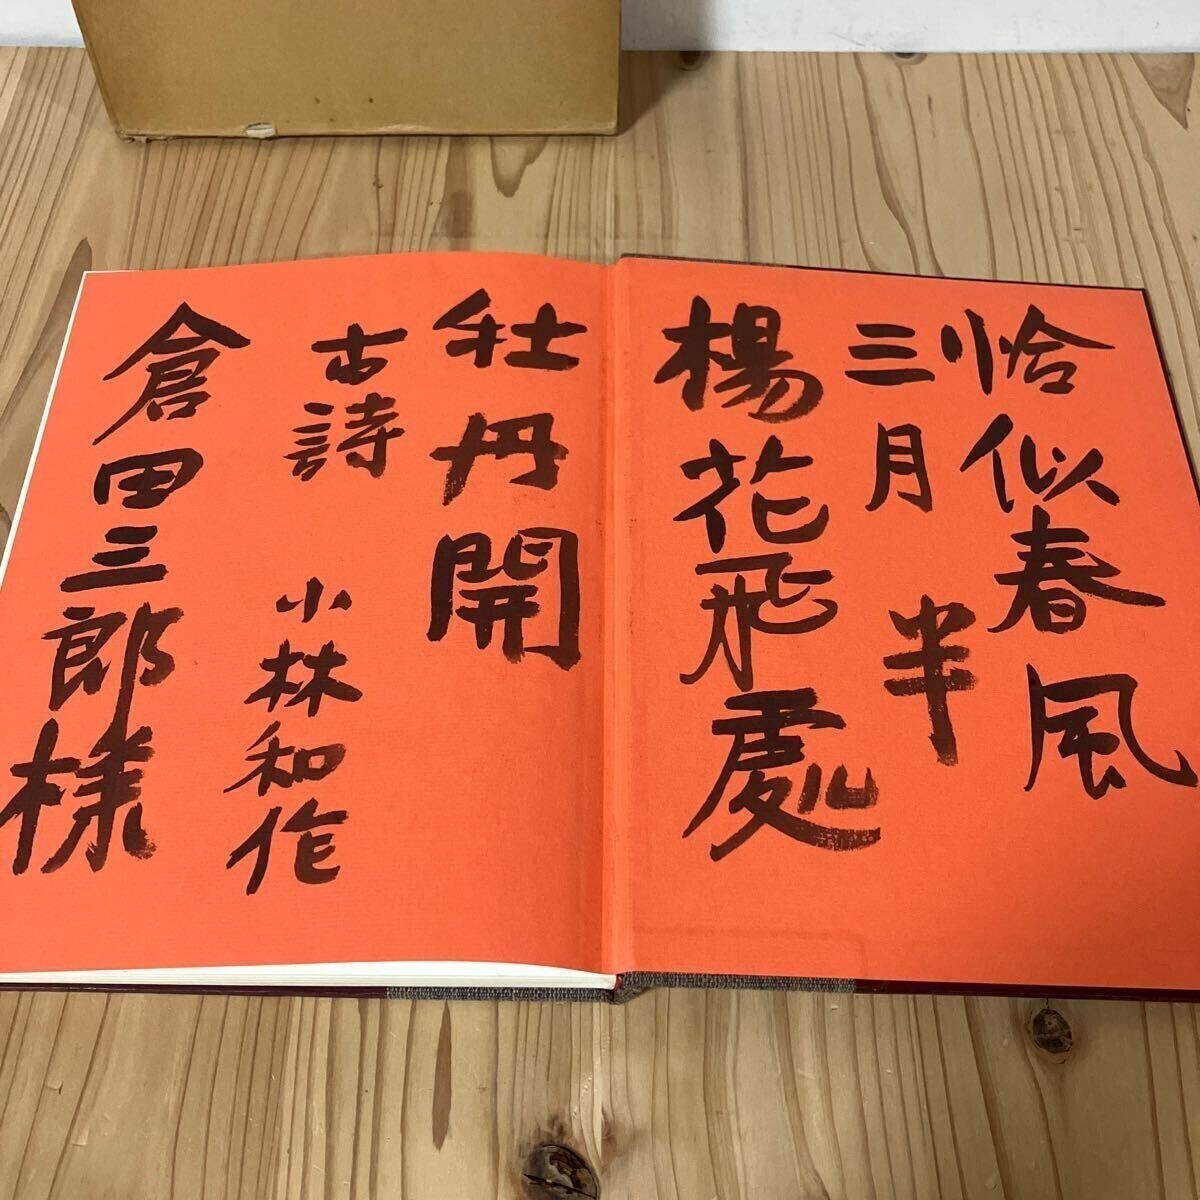 恰似春風
三月半
楊花飛處
牡丹開
古詩
小林和作
倉田三郎様